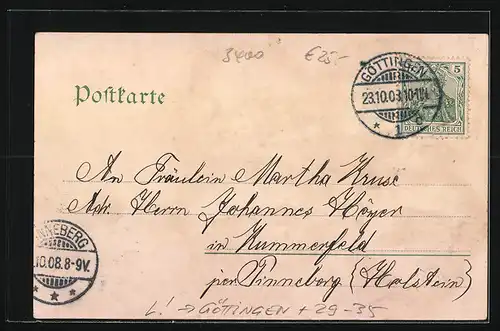 3400 €25,-
Postkarte
GÖTTINGEN
23.10.03.10-11V.
* 1 c
5
DEUTSCHES REICH
An Fräulein Martha Kruse
Adr. Herrn Johannes Höyer
in Kummerfeld
per Pinneberg (Holstein)
NNEBERG
.10.08.8-9V.
* * *
L! → GÖTTINGEN + 29-35